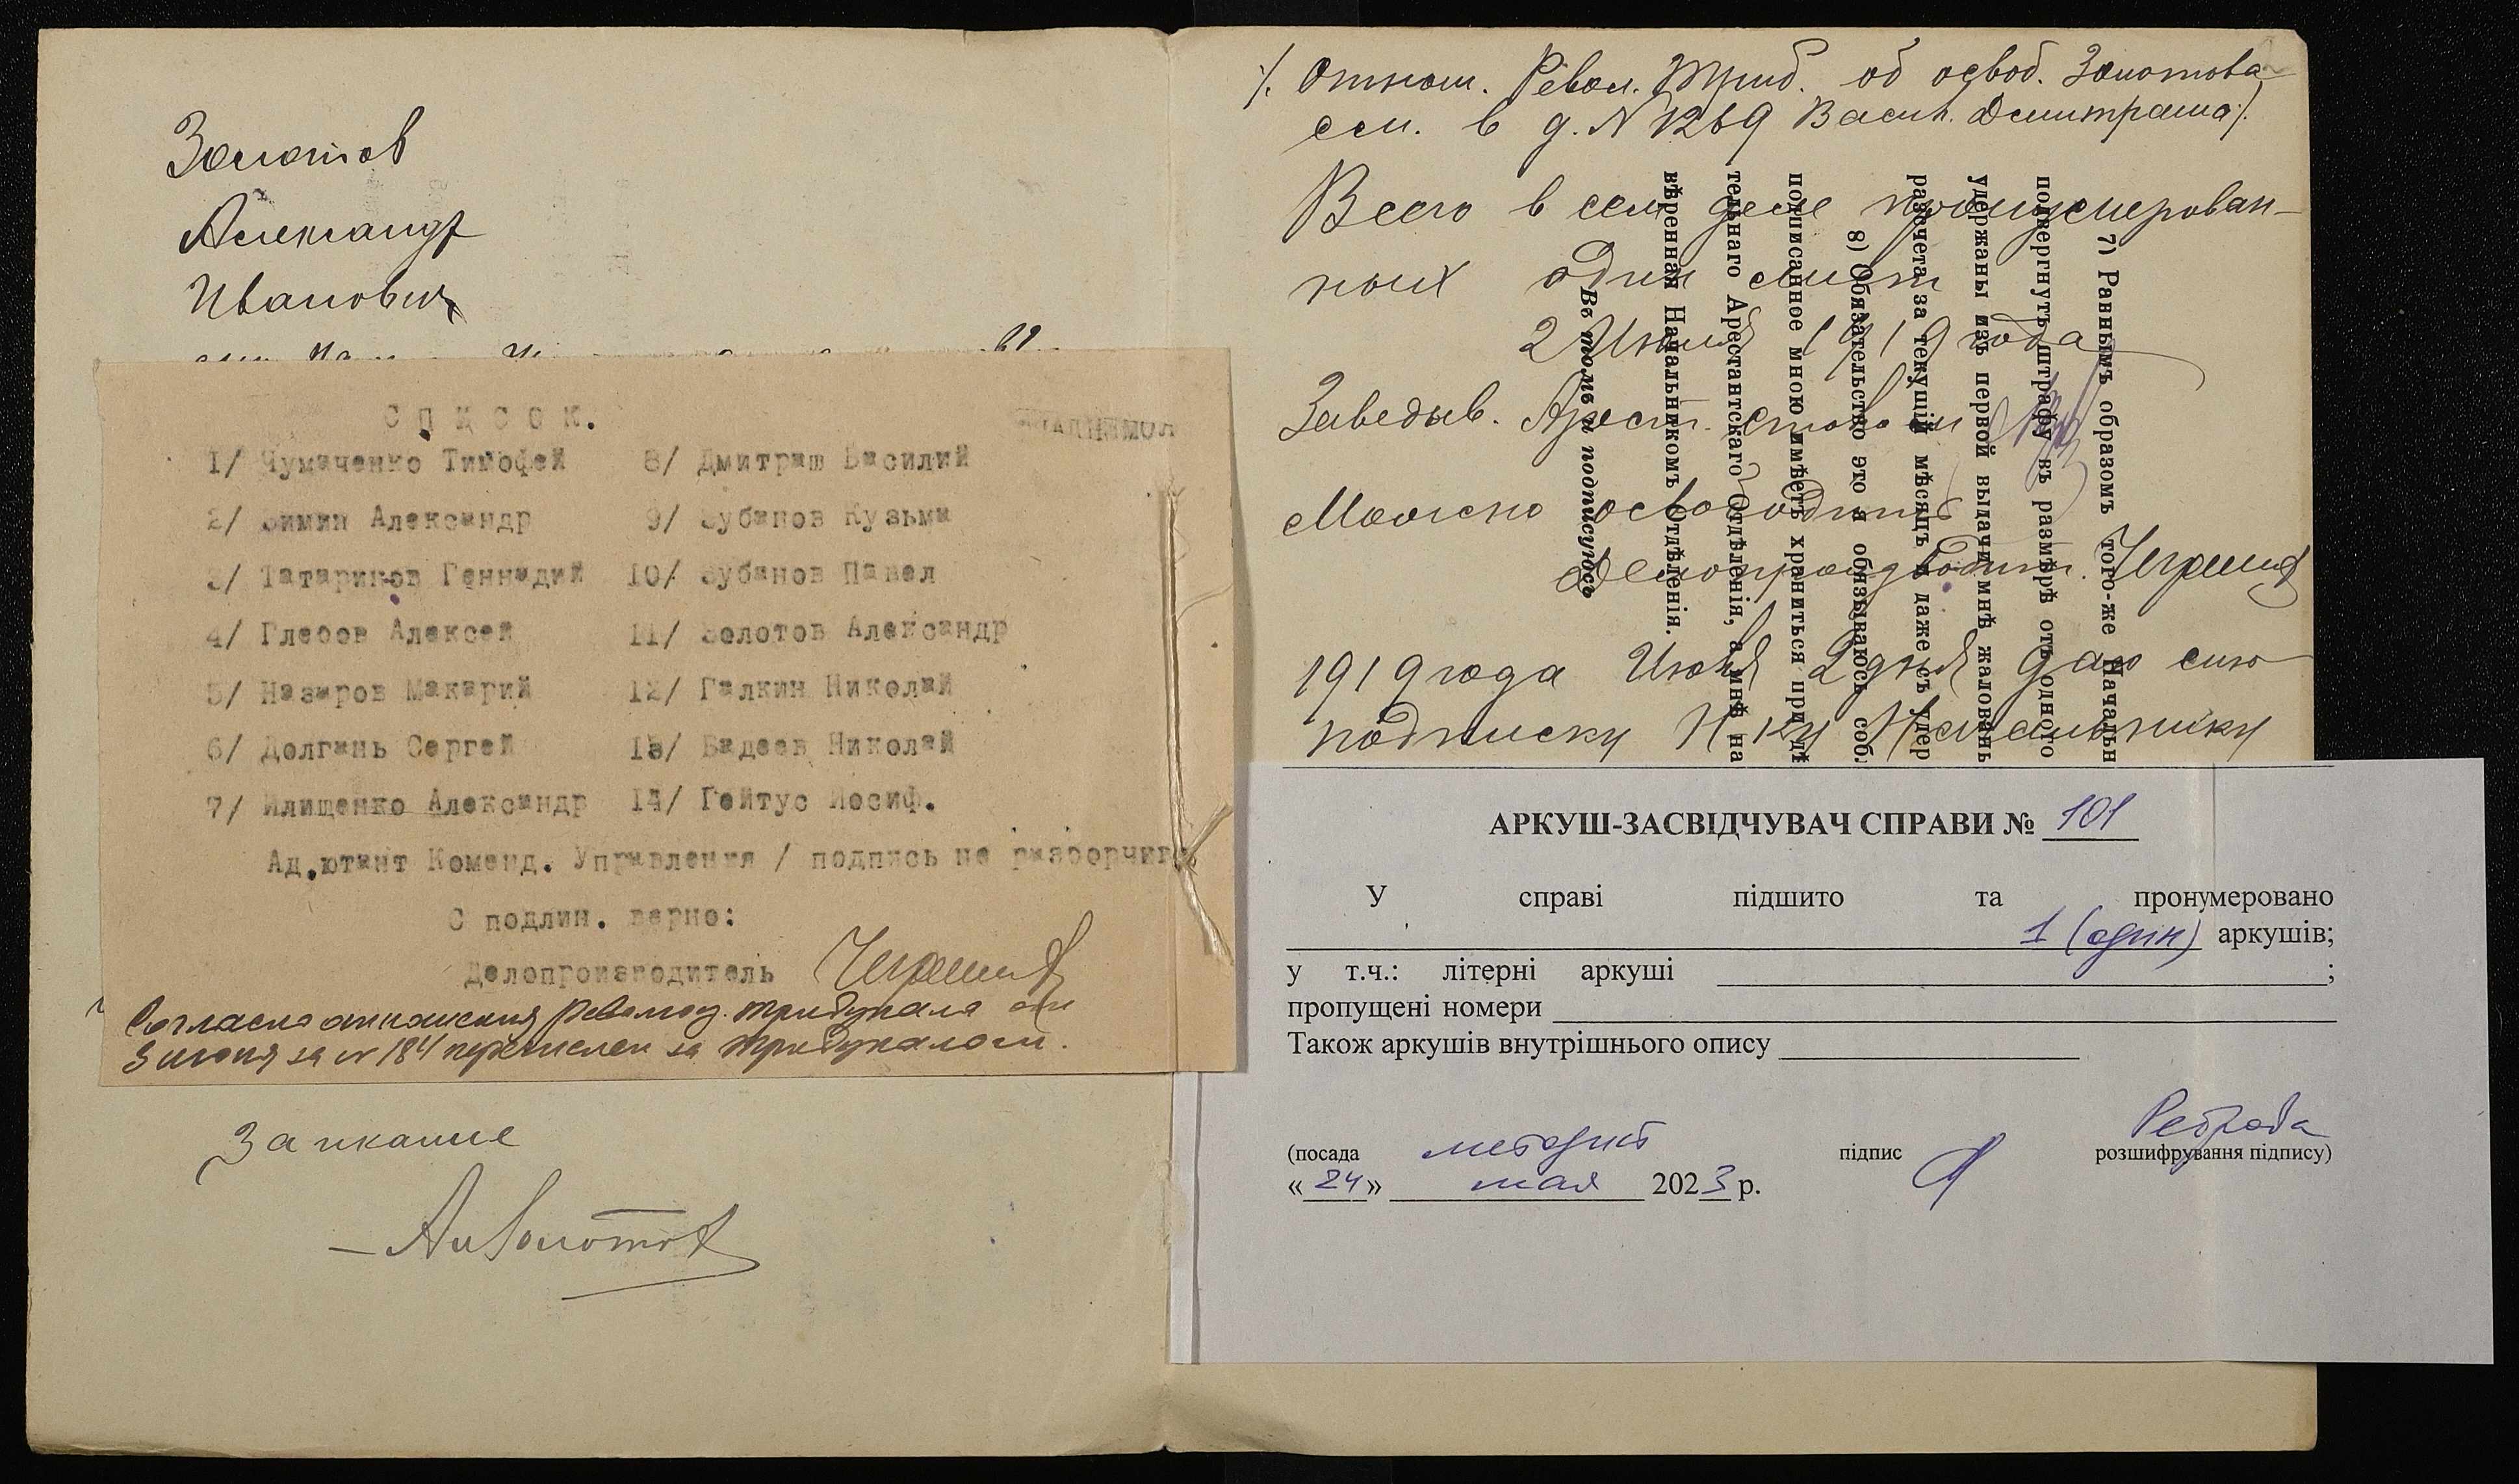 Золотов
Александр
Иванович
Список.
1/ Чумаченко Тимофей
2/ Зимин Александр
3/ Татаринов Геннадий
4/ Глебов Алексей
5/ Назаров Макарий
6/ Долгань Сергей
7/ Илищенко Александр
8/ Дмитраш Василий
9/ Зубанов Кузьма
10/ Зубанов Павел
11/ Золотов Александр
12/ Галкин Николай
13/ Бадеев Николай
14/ Гейтус Иосиф.
Ад.ютант Команд. Управления / подпись не разборчив
С подлин. верно:
Делопроизводитель
Согласно отношения Революц. трибунала от
3 июня за № 184 перечислен за трибуналом.
За икание
А Золотов
/. Отнош. Револ. Триб. об освоб. Золотова
см. в д. N 1269 Васил. Дмитраша/.
Всего в сем деле пронумерован-
ных один лист
2 Июня 1919 года
Заведыв. Арест. столом
Можно освободить
Делопроизводит.
1919 года Июня 2 дня даю сию
подписку Н-ку Начальнику
7) Равнымъ образомъ того-же Начальн
подвергнуть штрафу въ размѣрѣ отъ одного
удержаны изъ первой выдачи мнѣ жалованы
разсчета за текущій мѣсяцъ и даже съ удер
8) Обязательство это я обязываюсь собл
подписанное мною имѣетъ храниться при дѣ
тельнаго Арестантскаго Отдѣленія, а мнѣ на
вѣренная Начальникомъ Отдѣленія.
Въ томъ и подписуюсь
АРКУШ-ЗАСВІДЧУВАЧ СПРАВИ № 101
У справі підшито та пронумеровано
1 (один) аркушів;
у т.ч.: літерні аркуші ;
пропущені номери
Також аркушів внутрішнього опису
(посада методист підпис Реброва розшифрування підпису)
«24» мая 2023 р.